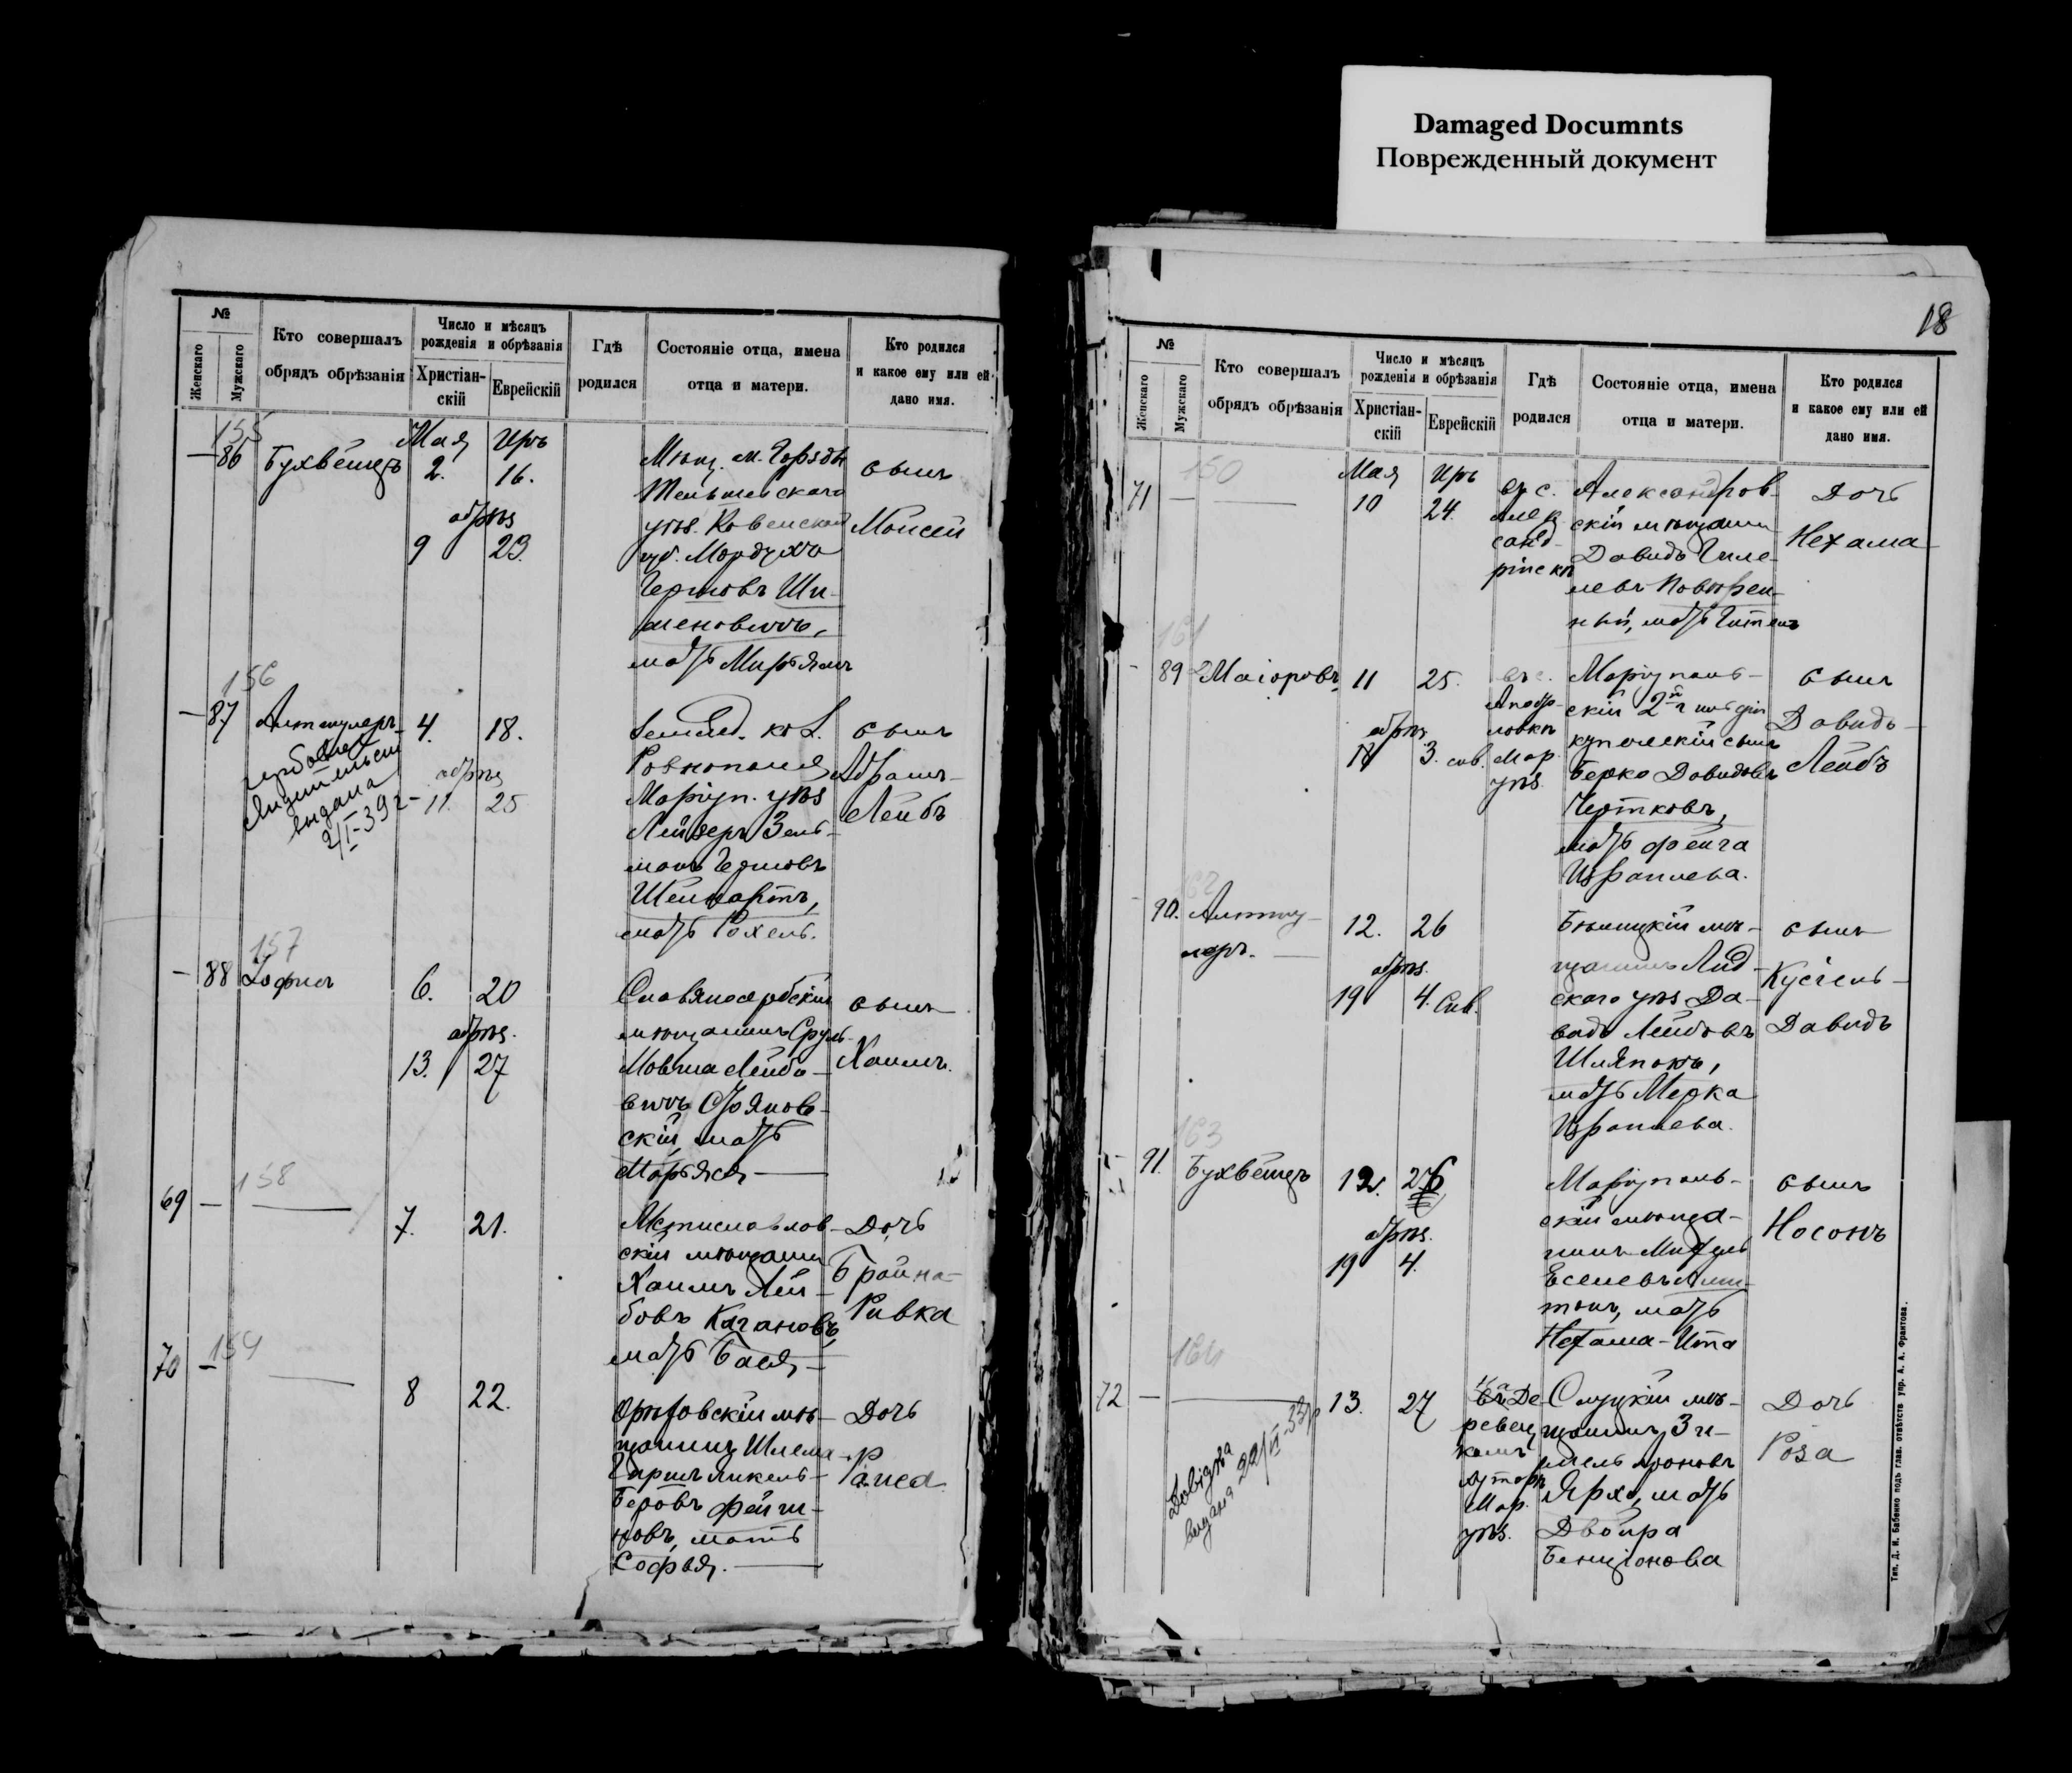 Damaged Documnts
Поврежденный документ
№
Женскаго
Мужскаго
Кто совершалъ
обрядъ обрѣзанія
Число и мѣсяцъ
рожденія и обрѣзанія
Христіан-
скій
Еврейскій
Гдѣ
родился
Состояніе отца, имена
отца и матери.
Кто родился
и какое ему или ей
дано имя.
155
— 86
Бухвейцъ
Мая
2.
Иръ
16.
обрѣз
9
23.
Мѣщ. м. Горжды
Тельшевскаго
уѣз. Ковенской
губ. Мордухъ
Герцовъ Ши-
меновичъ,
мать Мирьямъ
сынъ
Моисей
156
— 87
Альтшулеръ
4.
18.
обрѣз
11.
25
выдана
2/I-39 г
Землед. кол.
Ровнополя
Маріуп. уѣз
Лейзеръ Зель-
манъ Герцовъ
мать Рохель.
сынъ
Абрамъ-
Лейбъ
157
— 88
6.
20
обрѣз.
13.
27
Славяносербскій
мѣщанинъ Сруль-
Мовша Лейбо-
вичъ
скій, мать
Марьяся
сынъ
Хаимъ.
158
69 —
7.
21.
Мстиславов-
скій мѣщанин
Хаимъ Лей-
бовъ Кагановъ,
мать Бася
Дочь
Брайна-
Ривка
159
70 —
8
22.
Орѣховскій мѣ-
щанинъ Шлема-
Беровъ Фейги-
новъ, мать
Софья.
Дочь
Раиса
18
№
Женскаго
Мужскаго
Кто совершалъ
обрядъ обрѣзанія
Число и мѣсяцъ
рожденія и обрѣзанія
Христіан-
скій
Еврейскій
Гдѣ
родился
Состояніе отца, имена
отца и матери.
Кто родился
и какое ему или ей
дано имя.
71 —
Мая
10
Иръ
24.
въ с.
Алек
санд-
рінск
Александров-
скій мѣщанин
Давидъ Гиле-
левъ Повѣрен-
ный, мать
Дочь
Нехама
161
— 89
Маіоровъ
11
25.
обрѣз
18
3. сив.
въ с.
Мар.
уѣз.
Маріуполь-
скій 2й гильдіи
купеческій сынъ
Берко Давидовъ
Чертковъ,
мать Фейга
Израилева.
сынъ
Давидъ-
Лейбъ
162
90.
Альтшу-
леръ.
12.
26
обрѣз.
19
4. Сив.
мѣ-
щанинъ Лид-
скаго уѣз Да-
видъ Лейбовъ
Шляпокъ,
мать Мерка
Израилева.
сынъ
Кусіель-
Давидъ
163
91.
Бухвейцъ
12.
26
обрѣз.
19
4.
Маріуполь-
скій мѣща-
нинъ
мать
Нехама-Ита
сынъ
Носонъ
164
72 —
13.
27
Мар.
уѣз.
Слуцкій мѣ-
щанинъ
мать
Двойра
Бенціонова
Дочь
Роза
выдана
Тип. Д. И. Бабенко подъ глав. отвѣтств упр. А. А. Франтова.